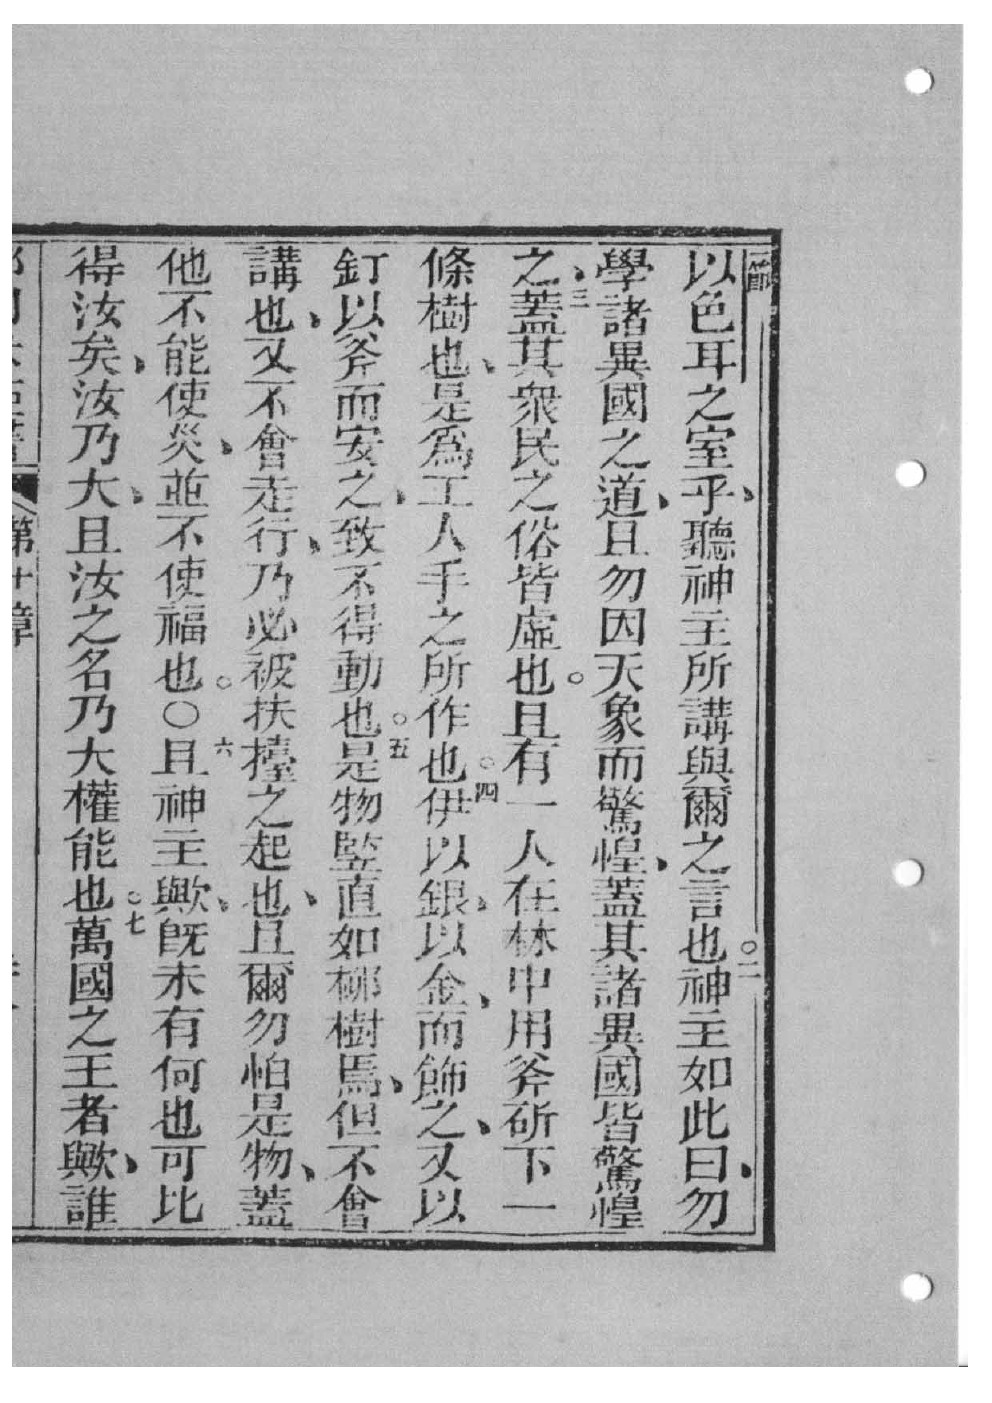 節
以色耳之室乎、聽神主所講與爾之言也。二神主如此曰、勿
學諸異國之道、且勿因天象而驚惶、蓋其諸異國皆驚惶
之、三蓋其衆民之俗皆虛也。且有一人在林中用斧斫下一
條樹也、是爲工人手之所作也。四伊以銀、以金、而飾之、又以
釘以斧而安之、致不得動也。五是物竪直如梛樹焉、但不會
講也、又不會走行、乃必被扶擡之起也、且爾勿怕是物、蓋
他不能使災、並不使福也。○六且神主歟、旣未有何也可比
得汝矣、汝乃大、且汝之名乃大權能也。七萬國之王者歟、誰
第十章